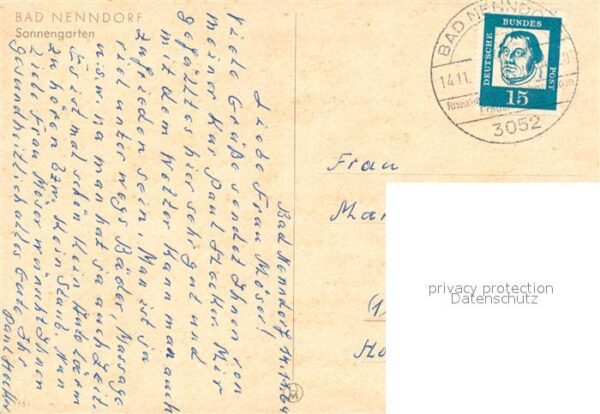 BAD NENNDORF
Sonnengarten
Bad Nenndorf 14.11.64
Liebe Frau Moser!
Viele Grüße sendet Ihnen von
meiner Kur Paul Hecker. Mir
gefällt es hier sehr gut und
mit dem Wetter kann man auch
zufrieden sein. Man ist ja
viel unterwegs Bäder Massage
u.s.w. na man hat ja auch Zeit.
Es ist mal schön kein Autolärm
zu hören bzw. kein Staub. Nun
liebe Frau Moser wünscht Ihnen
gesundheitlich alles Gute Ihr
Paul Hecker
BAD NENNDO
14.11.
3052
DEUTSCHE BUNDES POST
15
Frau
Mar
privacy protection
Datenschutz